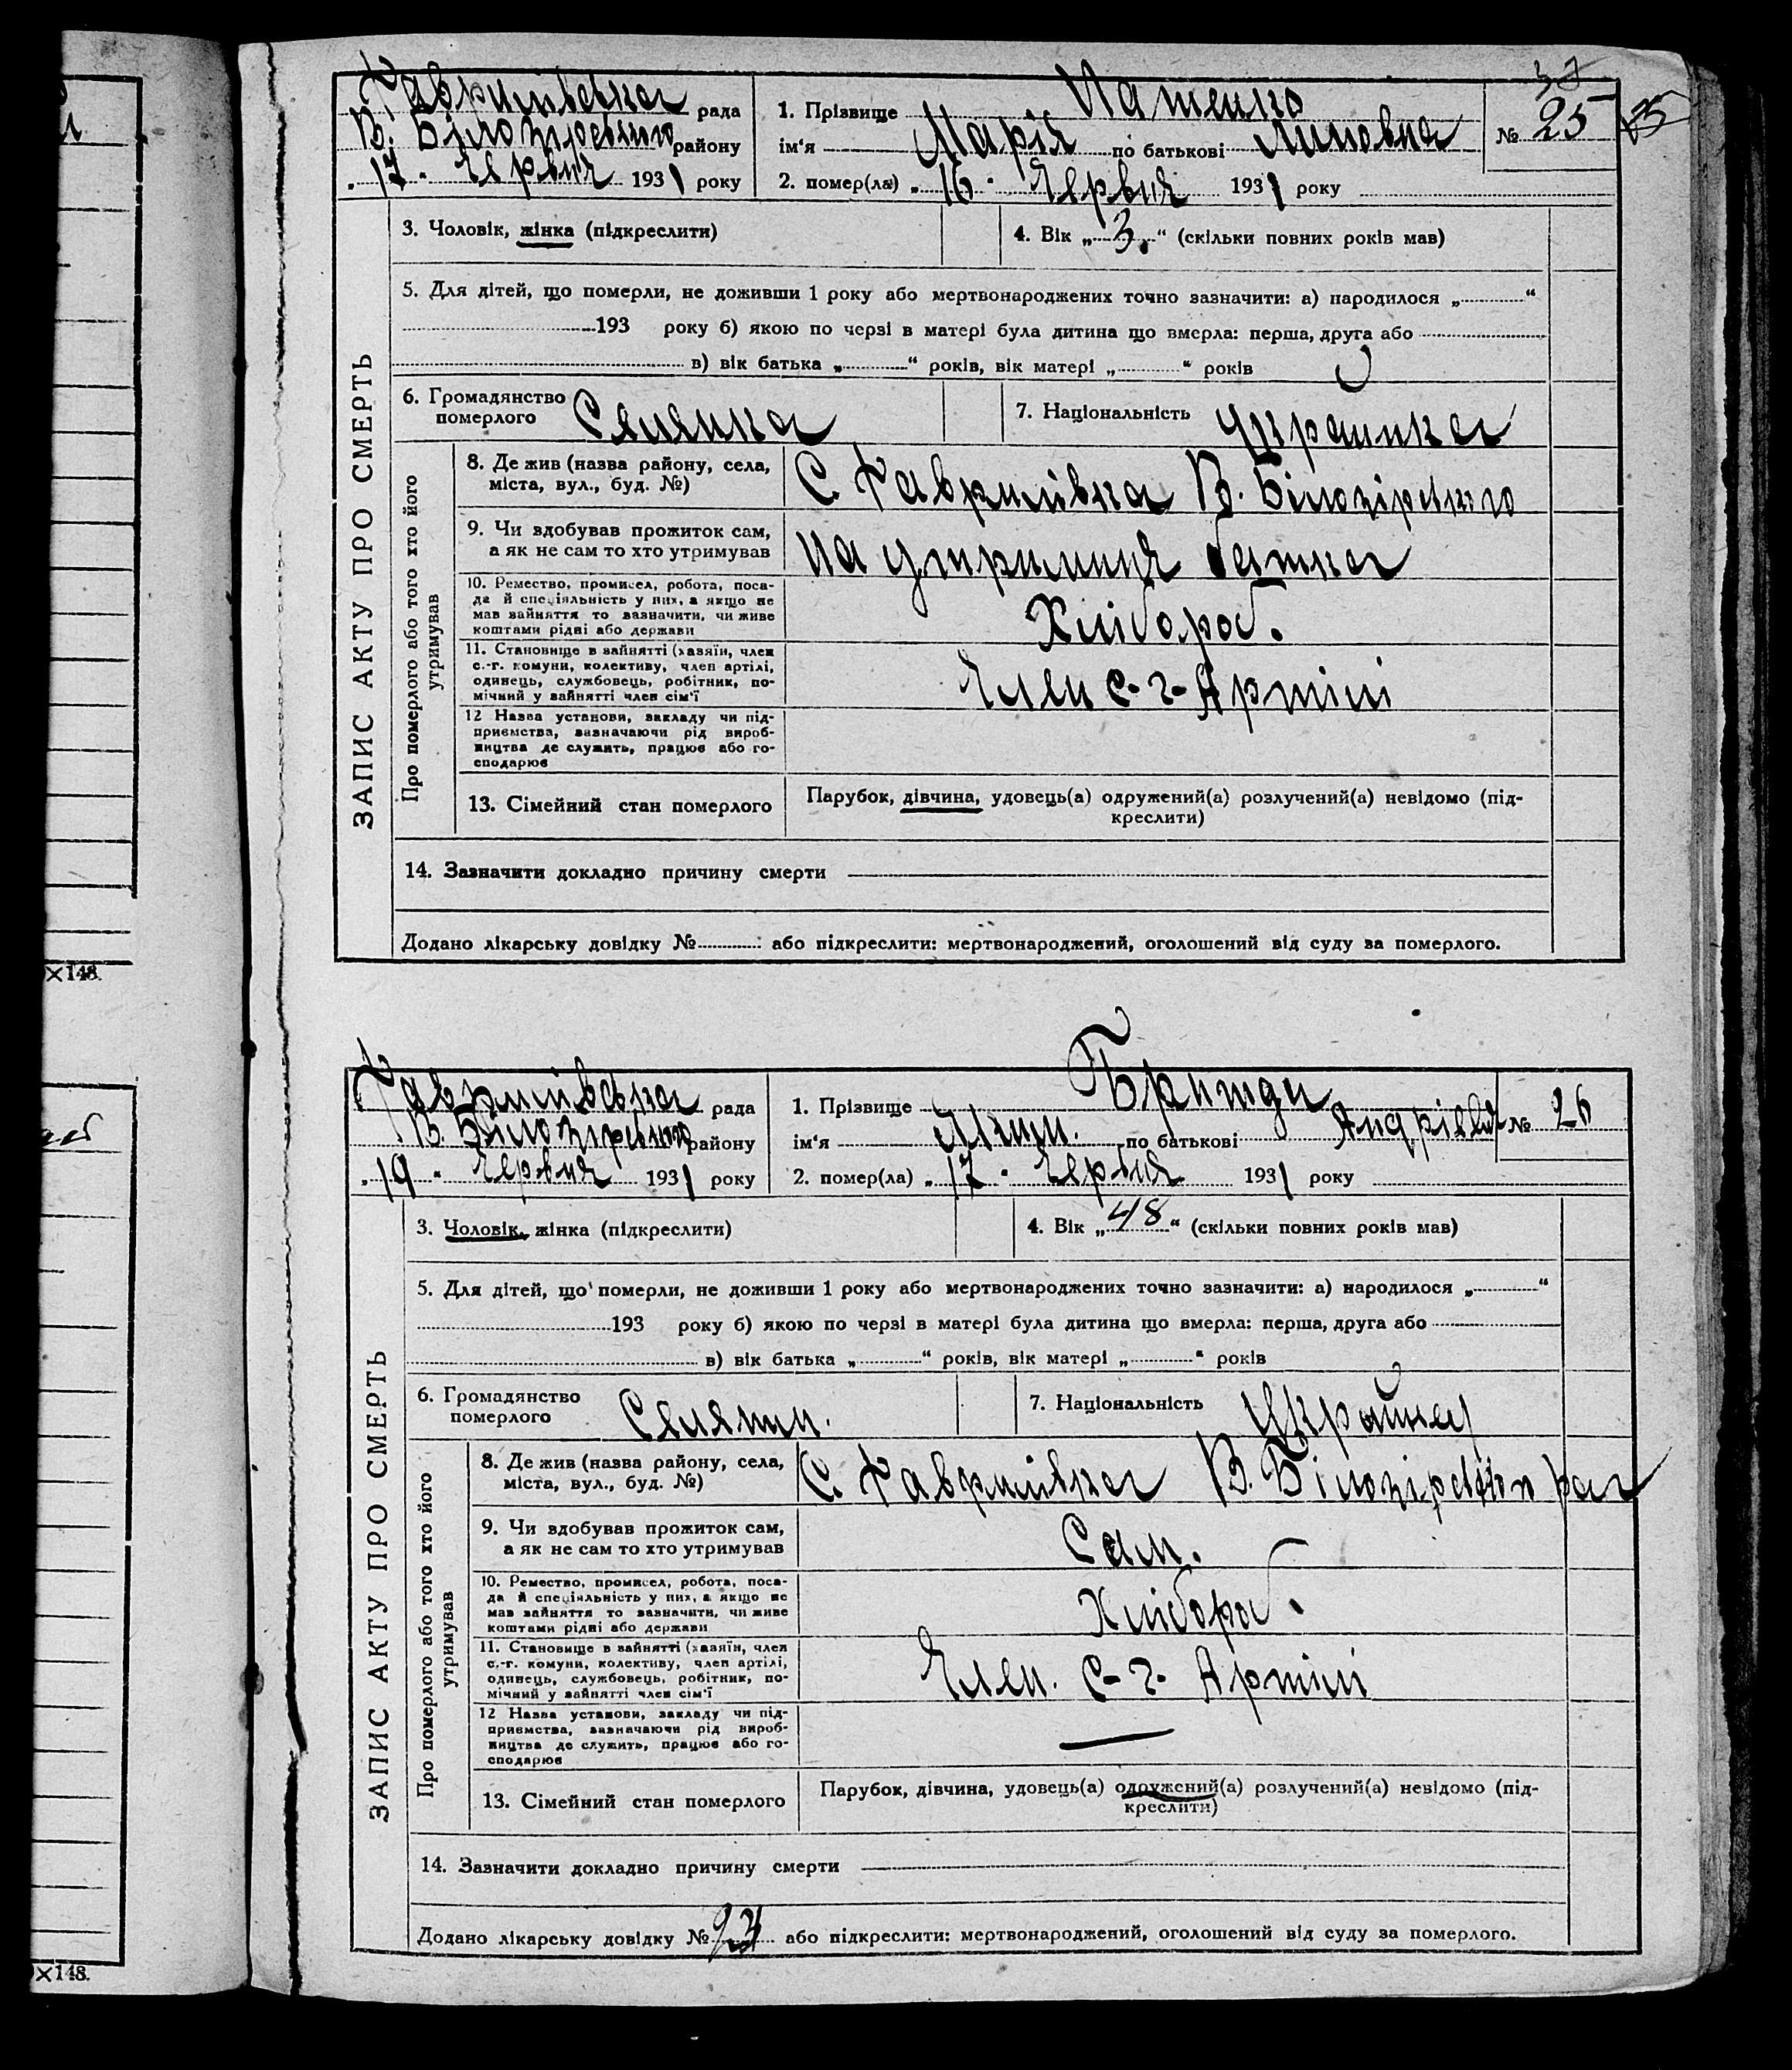 Гаврилівська рада
В. Білозірського району
„17“ червня 1931 року
1. Прізвище
ім‘я Марія по батькові
2. помер(ла) „16“ Червня 1931 року
№ 25
25
ЗАПИС АКТУ ПРО СМЕРТЬ
3. Чоловік, жінка (підкреслити)
4. Вік „3.“ (скільки повних років мав)
5. Для дітей, що померли, не доживши 1 року або мертвонароджених точно зазначити: а) народилося „ “
193 року б) якою по черзі в матері була дитина що вмерла: перша, друга або
в) вік батька „ “ років, вік матері „ “ років
6. Громадянство померлого Селянка
7. Національність Українка
Про померлого або того хто його утримував
8. Де жив (назва району, села, міста, вул., буд. №) С. Гаврилівка В. Білозірського
9. Чи здобував прожиток сам, а як не сам то хто утримував на утриманя батка
10. Ремество, промисел, робота, посада й спеціяльність у них, а якщо не мав зайняття то зазначити, чи живе коштами рідні або держави Хлібороб.
11. Становище в зайнятті (хазяїн, член с.-г. комуни, колективу, член артілі, одинець, службовець, робітник, помічний у зайнятті член сім‘ї Член С-г-Артілі
12 Назва установи, закладу чи підприємства, зазначаючи рід виробництва де служить, працює або господарює
13. Сімейний стан померлого
Парубок, дівчина, удовець(а) одружений(а) розлучений(а) невідомо (підкреслити)
14. Зазначити докладно причину смерти
Додано лікарську довідку № або підкреслити: мертвонароджений, оголошений від суду за померлого.
Гаврилівська рада
В. Білозірського району
„19“ червня 1931 року
1. Прізвище
ім‘я Яким. по батькові Андріевич
2. помер(ла) „17“ Червня 1931 року
№ 26
ЗАПИС АКТУ ПРО СМЕРТЬ
3. Чоловік, жінка (підкреслити)
4. Вік „48“ (скільки повних років мав)
5. Для дітей, що померли, не доживши 1 року або мертвонароджених точно зазначити: а) народилося „ “
193 року б) якою по черзі в матері була дитина що вмерла: перша, друга або
в) вік батька „ “ років, вік матері „ “ років
6. Громадянство померлого Селянин.
7. Національність Українец
Про померлого або того хто його утримував
8. Де жив (назва району, села, міста, вул., буд. №) С. Гаврилівка В. Білозірського ра
9. Чи здобував прожиток сам, а як не сам то хто утримував Сам.
10. Ремество, промисел, робота, посада й спеціяльність у них, а якщо не мав зайняття то зазначити, чи живе коштами рідні або держави Хлібороб.
11. Становище в зайнятті (хазяїн, член с.-г. комуни, колективу, член артілі, одинець, службовець, робітник, помічний у зайнятті член сім‘ї Член. С-г- Артілі
12 Назва установи, закладу чи підприємства, зазначаючи рід виробництва де служить, працює або господарює —
13. Сімейний стан померлого
Парубок, дівчина, удовець(а) одружений(а) розлучений(а) невідомо (підкреслити)
14. Зазначити докладно причину смерти
Додано лікарську довідку № або підкреслити: мертвонароджений, оголошений від суду за померлого.
×148.
×148.